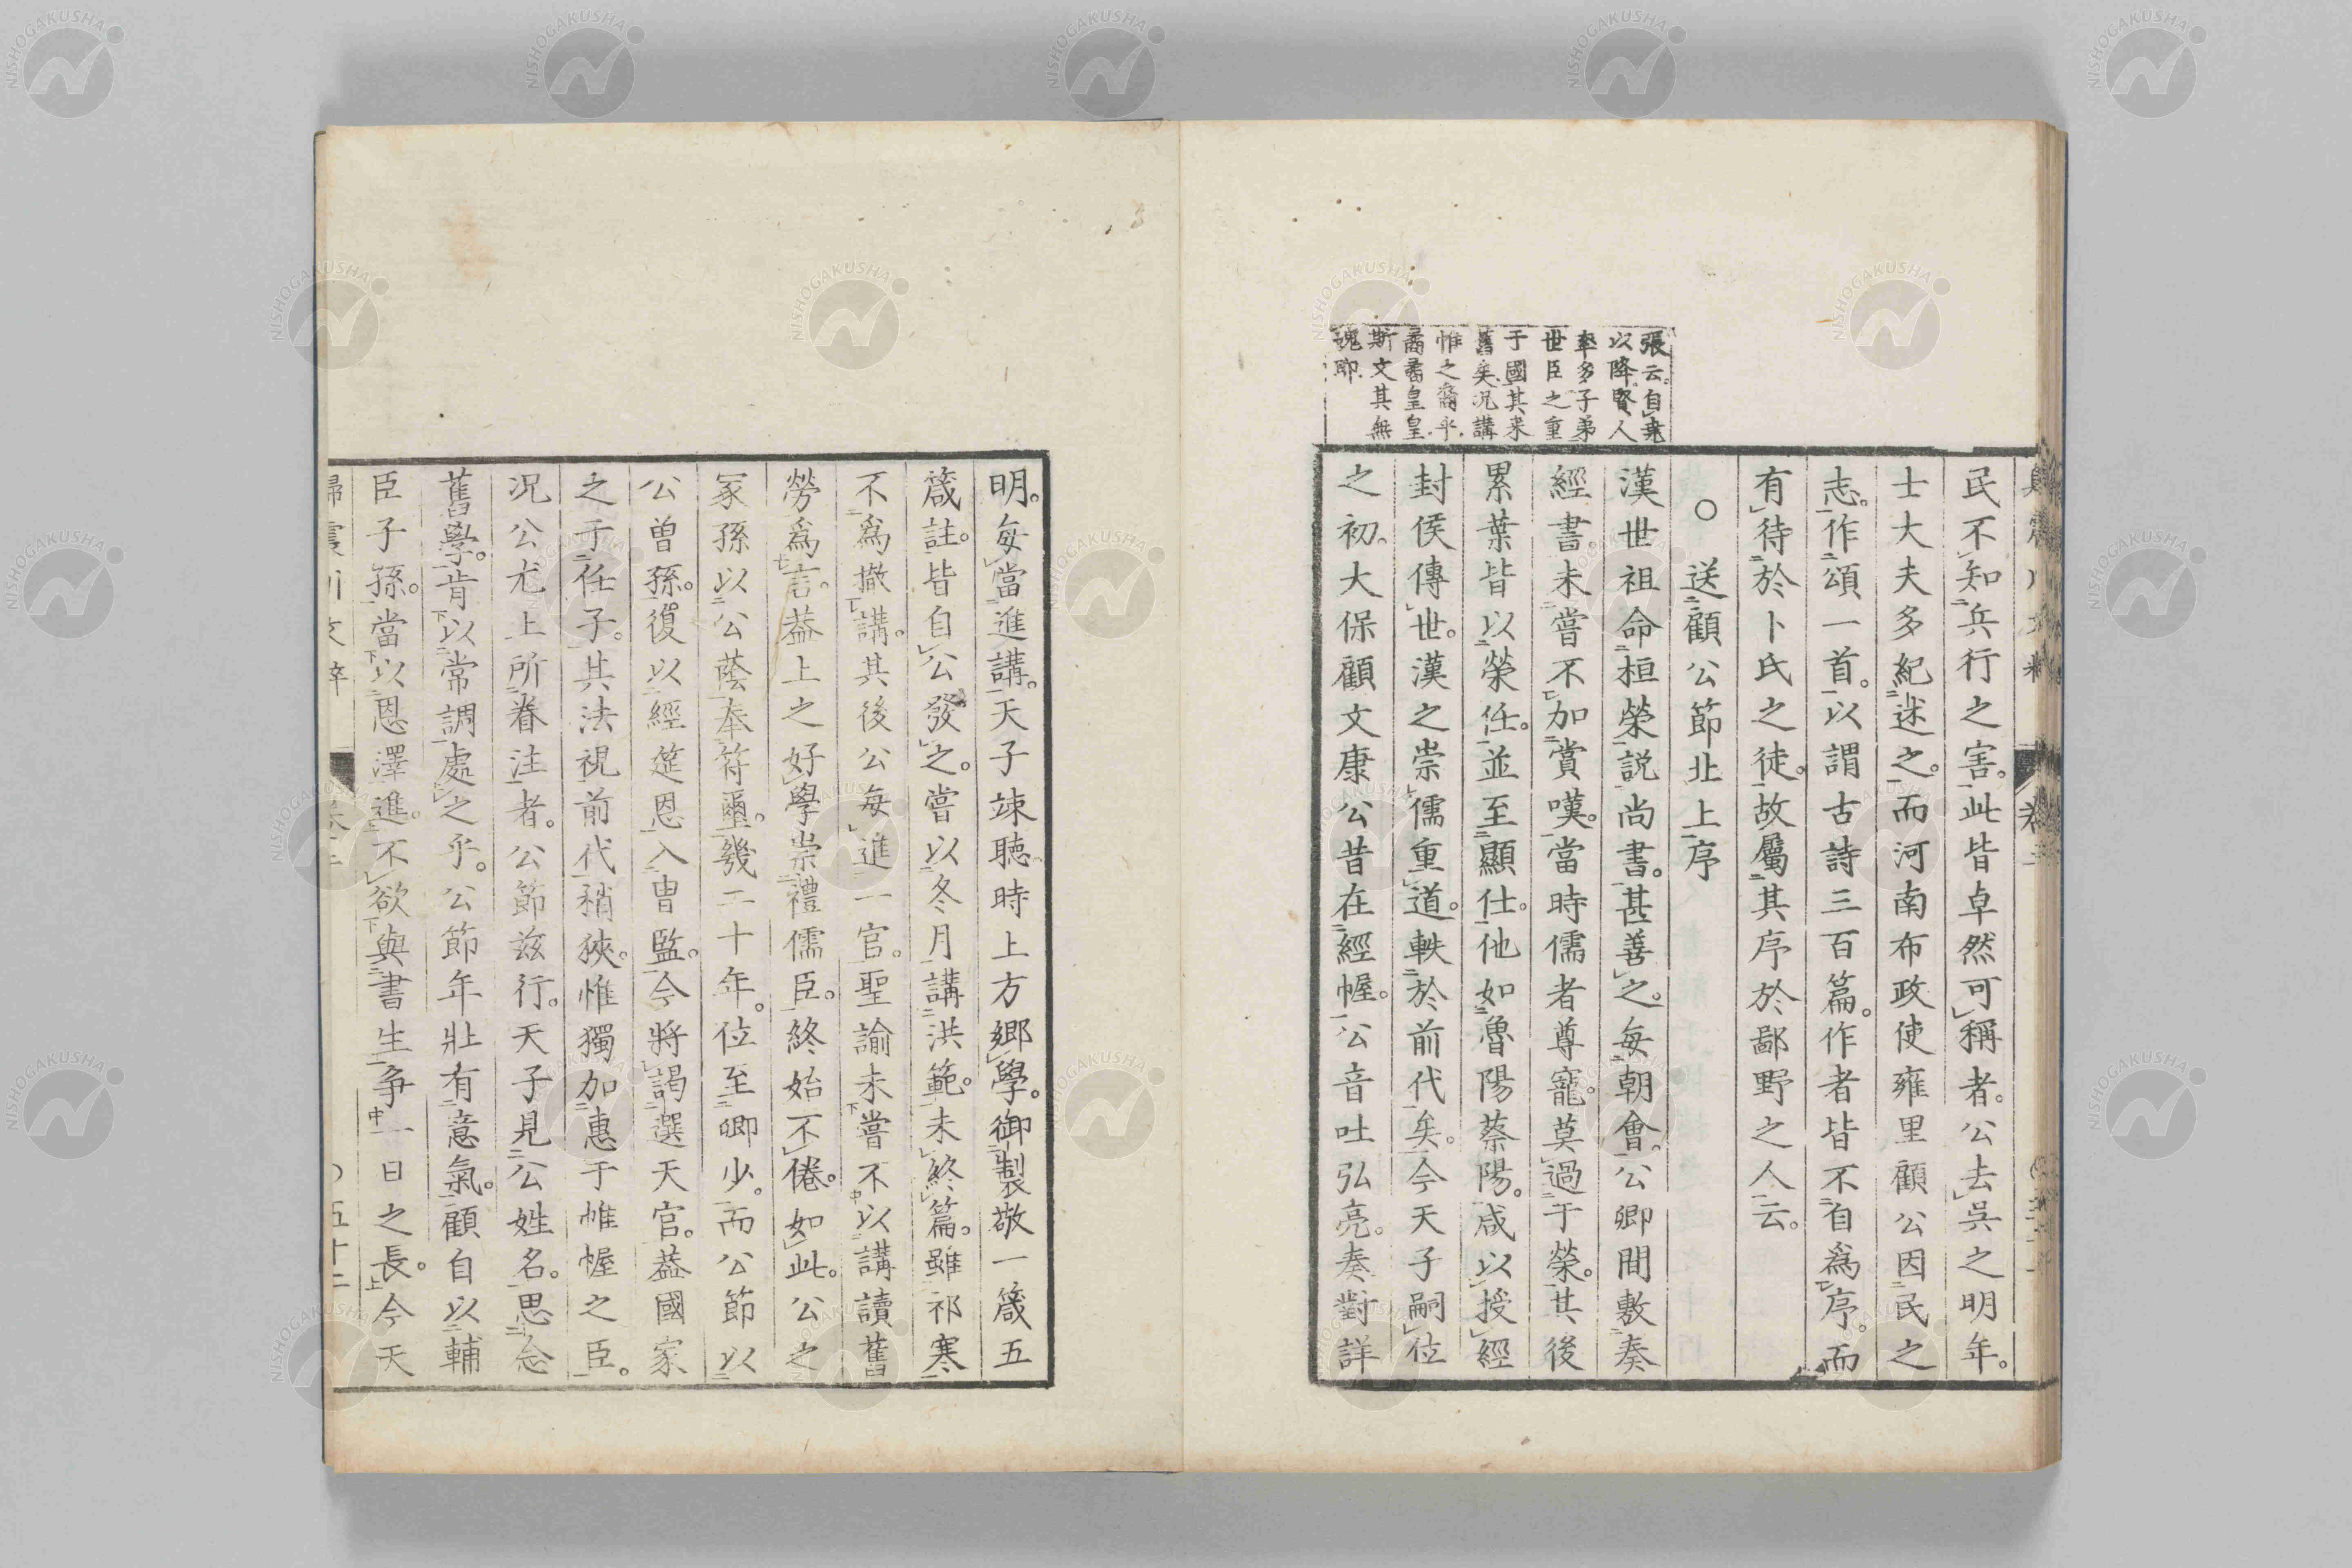 民不知兵行之害。此皆卓然可稱者。公去吳之明年。
士大夫多紀述之。而河南布政使雍里顧公因民之
志。作頌一首。以謂古詩三百篇。作者皆不自爲序。而
有待於卜氏之徒。故屬其序於鄙野之人云。
○送顧公節北上序
漢世祖命桓榮說尚書。甚善之。每朝會。公卿間敷奏
經書。未嘗不加賞嘆。當時儒者尊寵。莫過于榮。其後
累葉皆以榮任。並至顯仕。他如魯陽蔡陽。咸以授經
封侯傳世。漢之崇儒重道。軼於前代矣。今天子嗣位
之初。大保顧文康公昔在經幄。公音吐弘亮。奏對詳
張云。自堯
以降。賢人
率多子弟
世臣之重
于國其來
舊矣。況講
惟之裔乎。
矞矞皇皇。
斯文其無
愧耶。
明。每當進講。天子竦聽。時上方鄉學。御製敬一箴五
箴註。皆自公發之。嘗以冬月講洪範。未終篇。雖祁寒
不爲撤講。其後公每進一官。聖諭未嘗不以講讀舊
勞爲言。葢上之好學崇禮儒臣。終始不倦。如此。公之
冢孫以公蔭奉符璽。幾二十年。位至卿少。而公節以
公曽孫。復以經筵恩入冑監。今將謁選天官。葢國家
之于任子。其法視前代稍狹。惟獨加惠于帷幄之臣。
況公尤上所眷注者。公節茲行。天子見公姓名。思念
舊學。肯以常調處之乎。公節年壯有意氣。顧自以輔
臣子孫。當以恩澤進。不欲與書生爭一日之長。今天
卷二
五十二
NISHOGAKUSHA